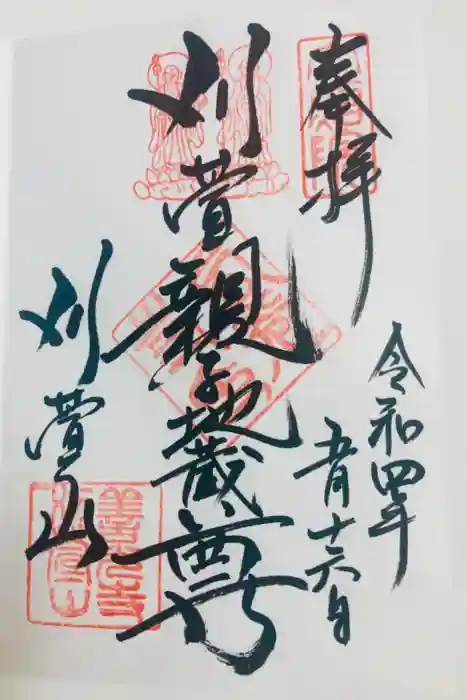 奉拝
令和四年
五月十六日
刈萱親子地蔵尊
刈萱山